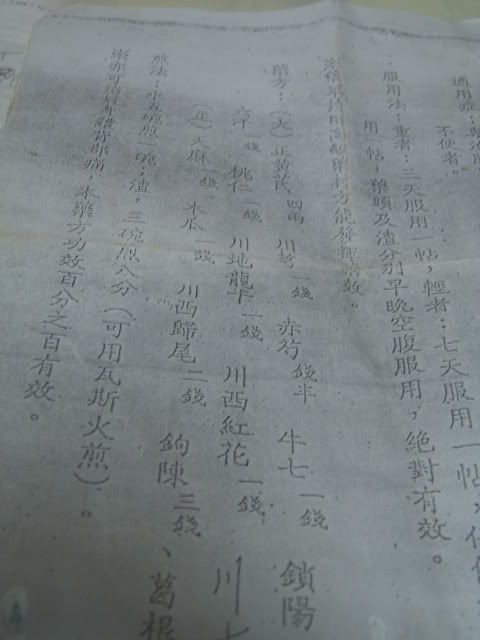 適用症：
不便者。
服用法：重者：三天服用一帖，輕者：七天服用一帖，
用一帖，藥頭及渣分別早晚空腹服用，絕對有效。
藥材方能發揮藥效。
藥方：（大）正黃芪四兩 川芎一錢 赤芍錢半 牛七一錢 鎖陽
桃仁一錢 川地龍干一錢 川西紅花一錢 川七
（正）天麻一錢 木瓜一錢 川西歸尾二錢 鉤陳三錢、葛根
煎法：水五碗煎一碗；渣，三碗煎八分（可用瓦斯火煎）。
痛，本藥方功效百分之百有效。